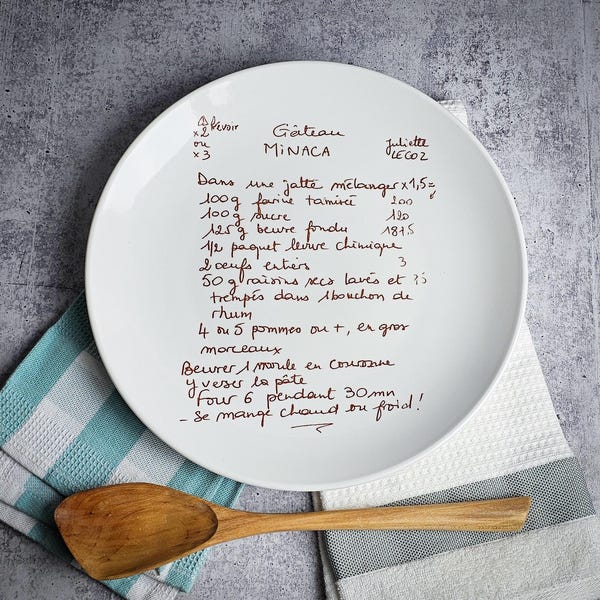 ⚠ Prévoir
x2
ou
x3
Gâteau
MINACA
Juliette
LECOZ
Dans une jatte mélanger x1,5=
100g farine tamisée 200
100g sucre 120
125g beurre fondu 187,5
1/2 paquet levure chimique
2 œufs entiers 3
50 g raisins secs lavés et
trempés dans 1 bouchon de
rhum
4 ou 5 pommes ou +, en gros
morceaux
Beurrer 1 moule en couronne
y verser la pâte
Four 6 pendant 30 mn
- Se mange chaud ou froid!